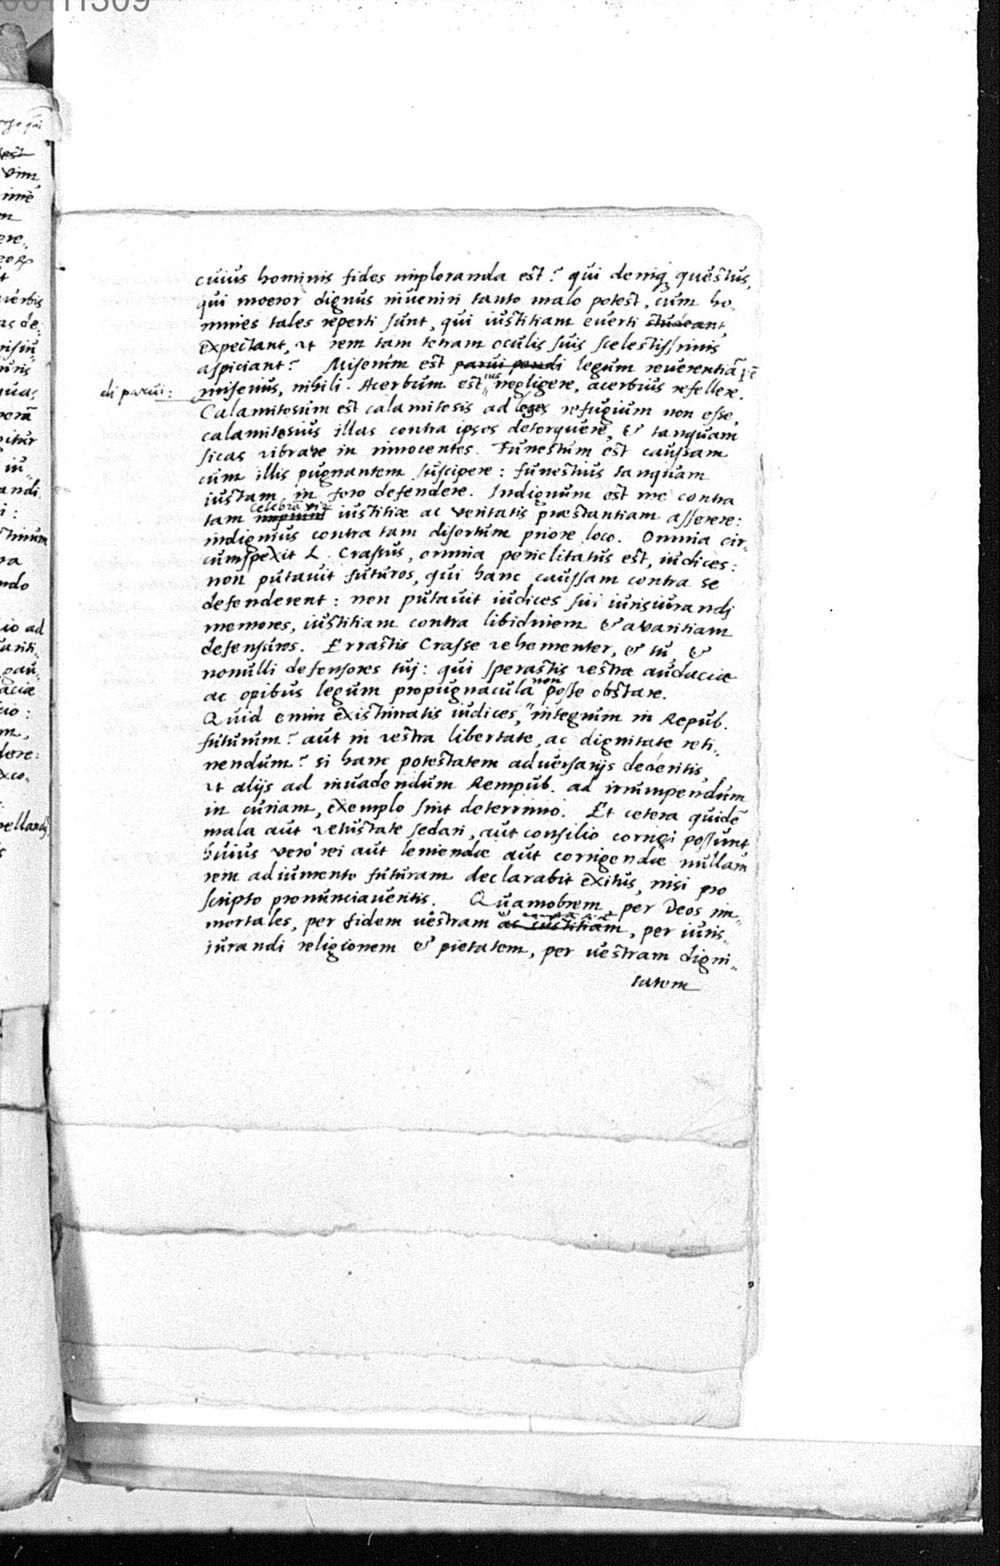 cuius hominis fides imploranda est? qui deniq questus,
qui moeror dignus inueniri tanto malo potest, cum ho-
mines tales reperti sunt, qui iustitiam euerti studeant,
expectant, ut rem tam tetram oculis suis scelestissimis
aspiciant? Miserum est parui pendi legum reuerentiã
di parui:
miserius, nihili. Acerbum est ius negligere, acerbius refellere.
Calamitosum est calamitosis ad leges refugium non esse,
calamitosius illas contra ipsos detorquere, & tanquam
sicas vibrare in innocentes. Funestum est caussam
cum illis pugnantem suscipere: funestius tanquam
iustam in foro defendere. Indignum est me contra
tam iustitiæ ac veritatis præstantiam asserere:
indignius contra tam disertum priore loco. Omnia cir-
cumspexit L. Crassus, omnia periclitatus est, iudices:
non putauit futuros, qui hanc caussam contra se
defenderent: non putauit iudices sui iurisiurandi
memores, iustitiam contra libidinem & auaritiam
defensuros. Errastis Crasse vehementer, & tu &
nonulli defensores tui: qui sperastis vestræ audaciæ
ac opibus legum propugnacula non posse obstare.
Quid enim existimatis iudices, integrum in Repub.
futurum? aut in vestra libertate, ac dignitate reti-
nendum? si hanc potestatem aduersarijs dederitis,
ut alijs ad inuadendum Rempub. ad irrumpendum
in curiam, exemplo sint deterrimo. Et cetera quidẽ
mala aut vetustate sedari, aut consilio corrigi possunt
huius verò rei aut leniendæ aut corrigendæ nullam
rem adiumento futuram declarabit exitus, nisi pro
scripto pronunciaueritis. Quamobrem per Deos im-
mortales, per fidem uestram ac iustitiam, per iuris-
iurandi religionem & pietatem, per uestram digni-
tatem